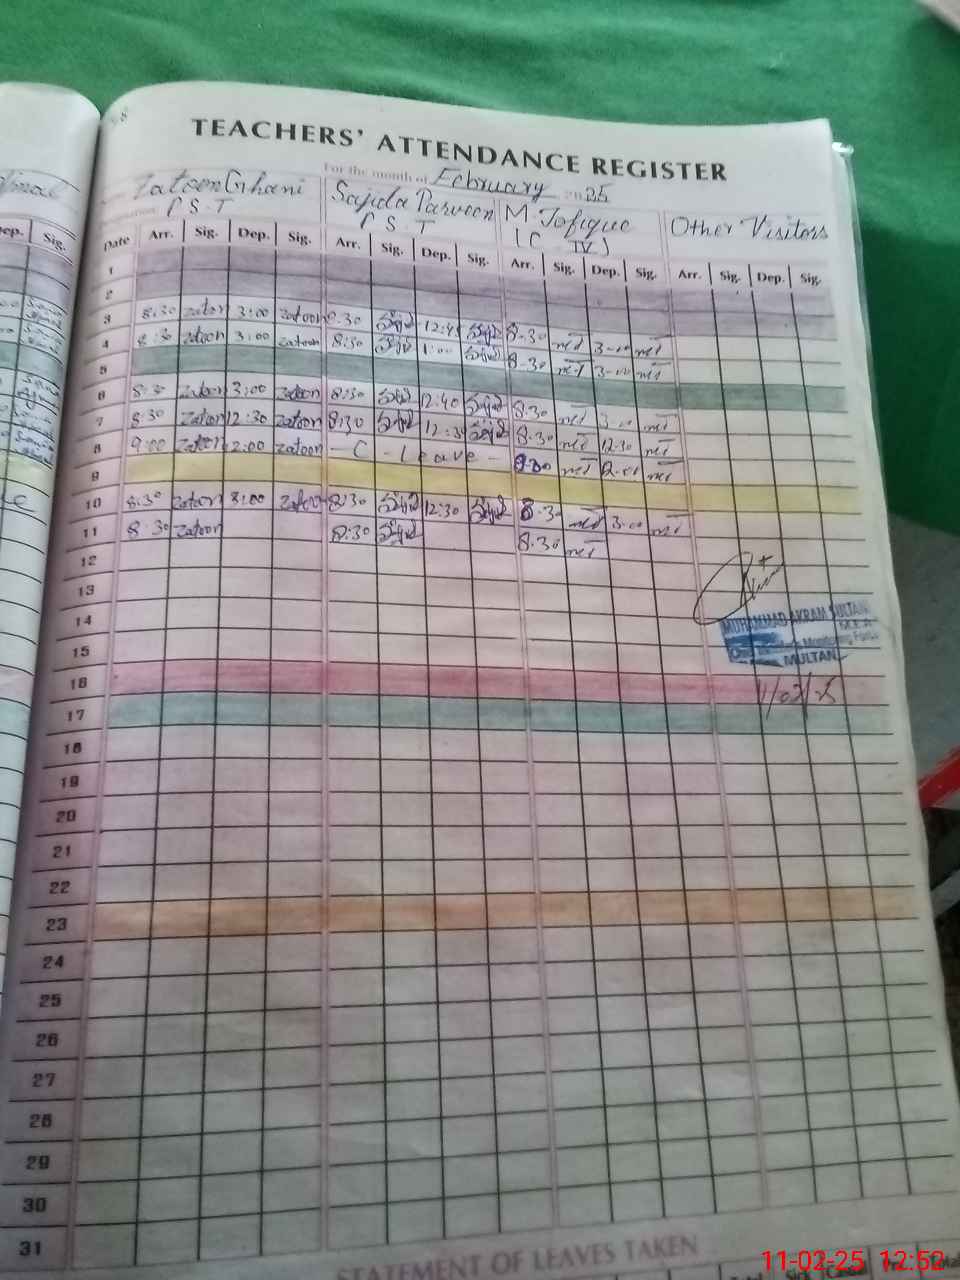 TEACHERS' ATTENDANCE REGISTER
For the month of February 2025
Zatoon Ghani Sajida Parveen M. Tofique Other Visitors
P S T P S T (C IV)
Date Arr. Sig. Dep. Sig. Arr. Sig. Dep. Sig. Arr. Sig. Dep. Sig. Arr. Sig. Dep. Sig.
1
2
3 8:30 zatoon 3:00 zatoon 8:30 12:45 8:30 3:00
4 8:30 zatoon 3:00 zatoon 8:30 1:00 8:30 3:00
5
6 8:30 zatoon 3:00 zatoon 8:30 12:40 8:30 3:00
7 8:30 zatoon 12:30 zatoon 8:30 12:30 8:30 12:30
8 9:00 zatoon 12:00 zatoon - C - Leave - 9:00 12:00
9
10 8:30 zatoon 3:00 zatoon 8:30 12:30 8:30 3:00
11 8:30 zatoon 8:30 8:30
12
13
14
MUHAMMAD AKRAM SULTAN
M.E.A
Monitoring Force
MULTAN
15
16
11/02/25
17
18
19
20
21
22
23
24
25
26
27
28
29
30
31
STATEMENT OF LEAVES TAKEN
11-02-25 12:52